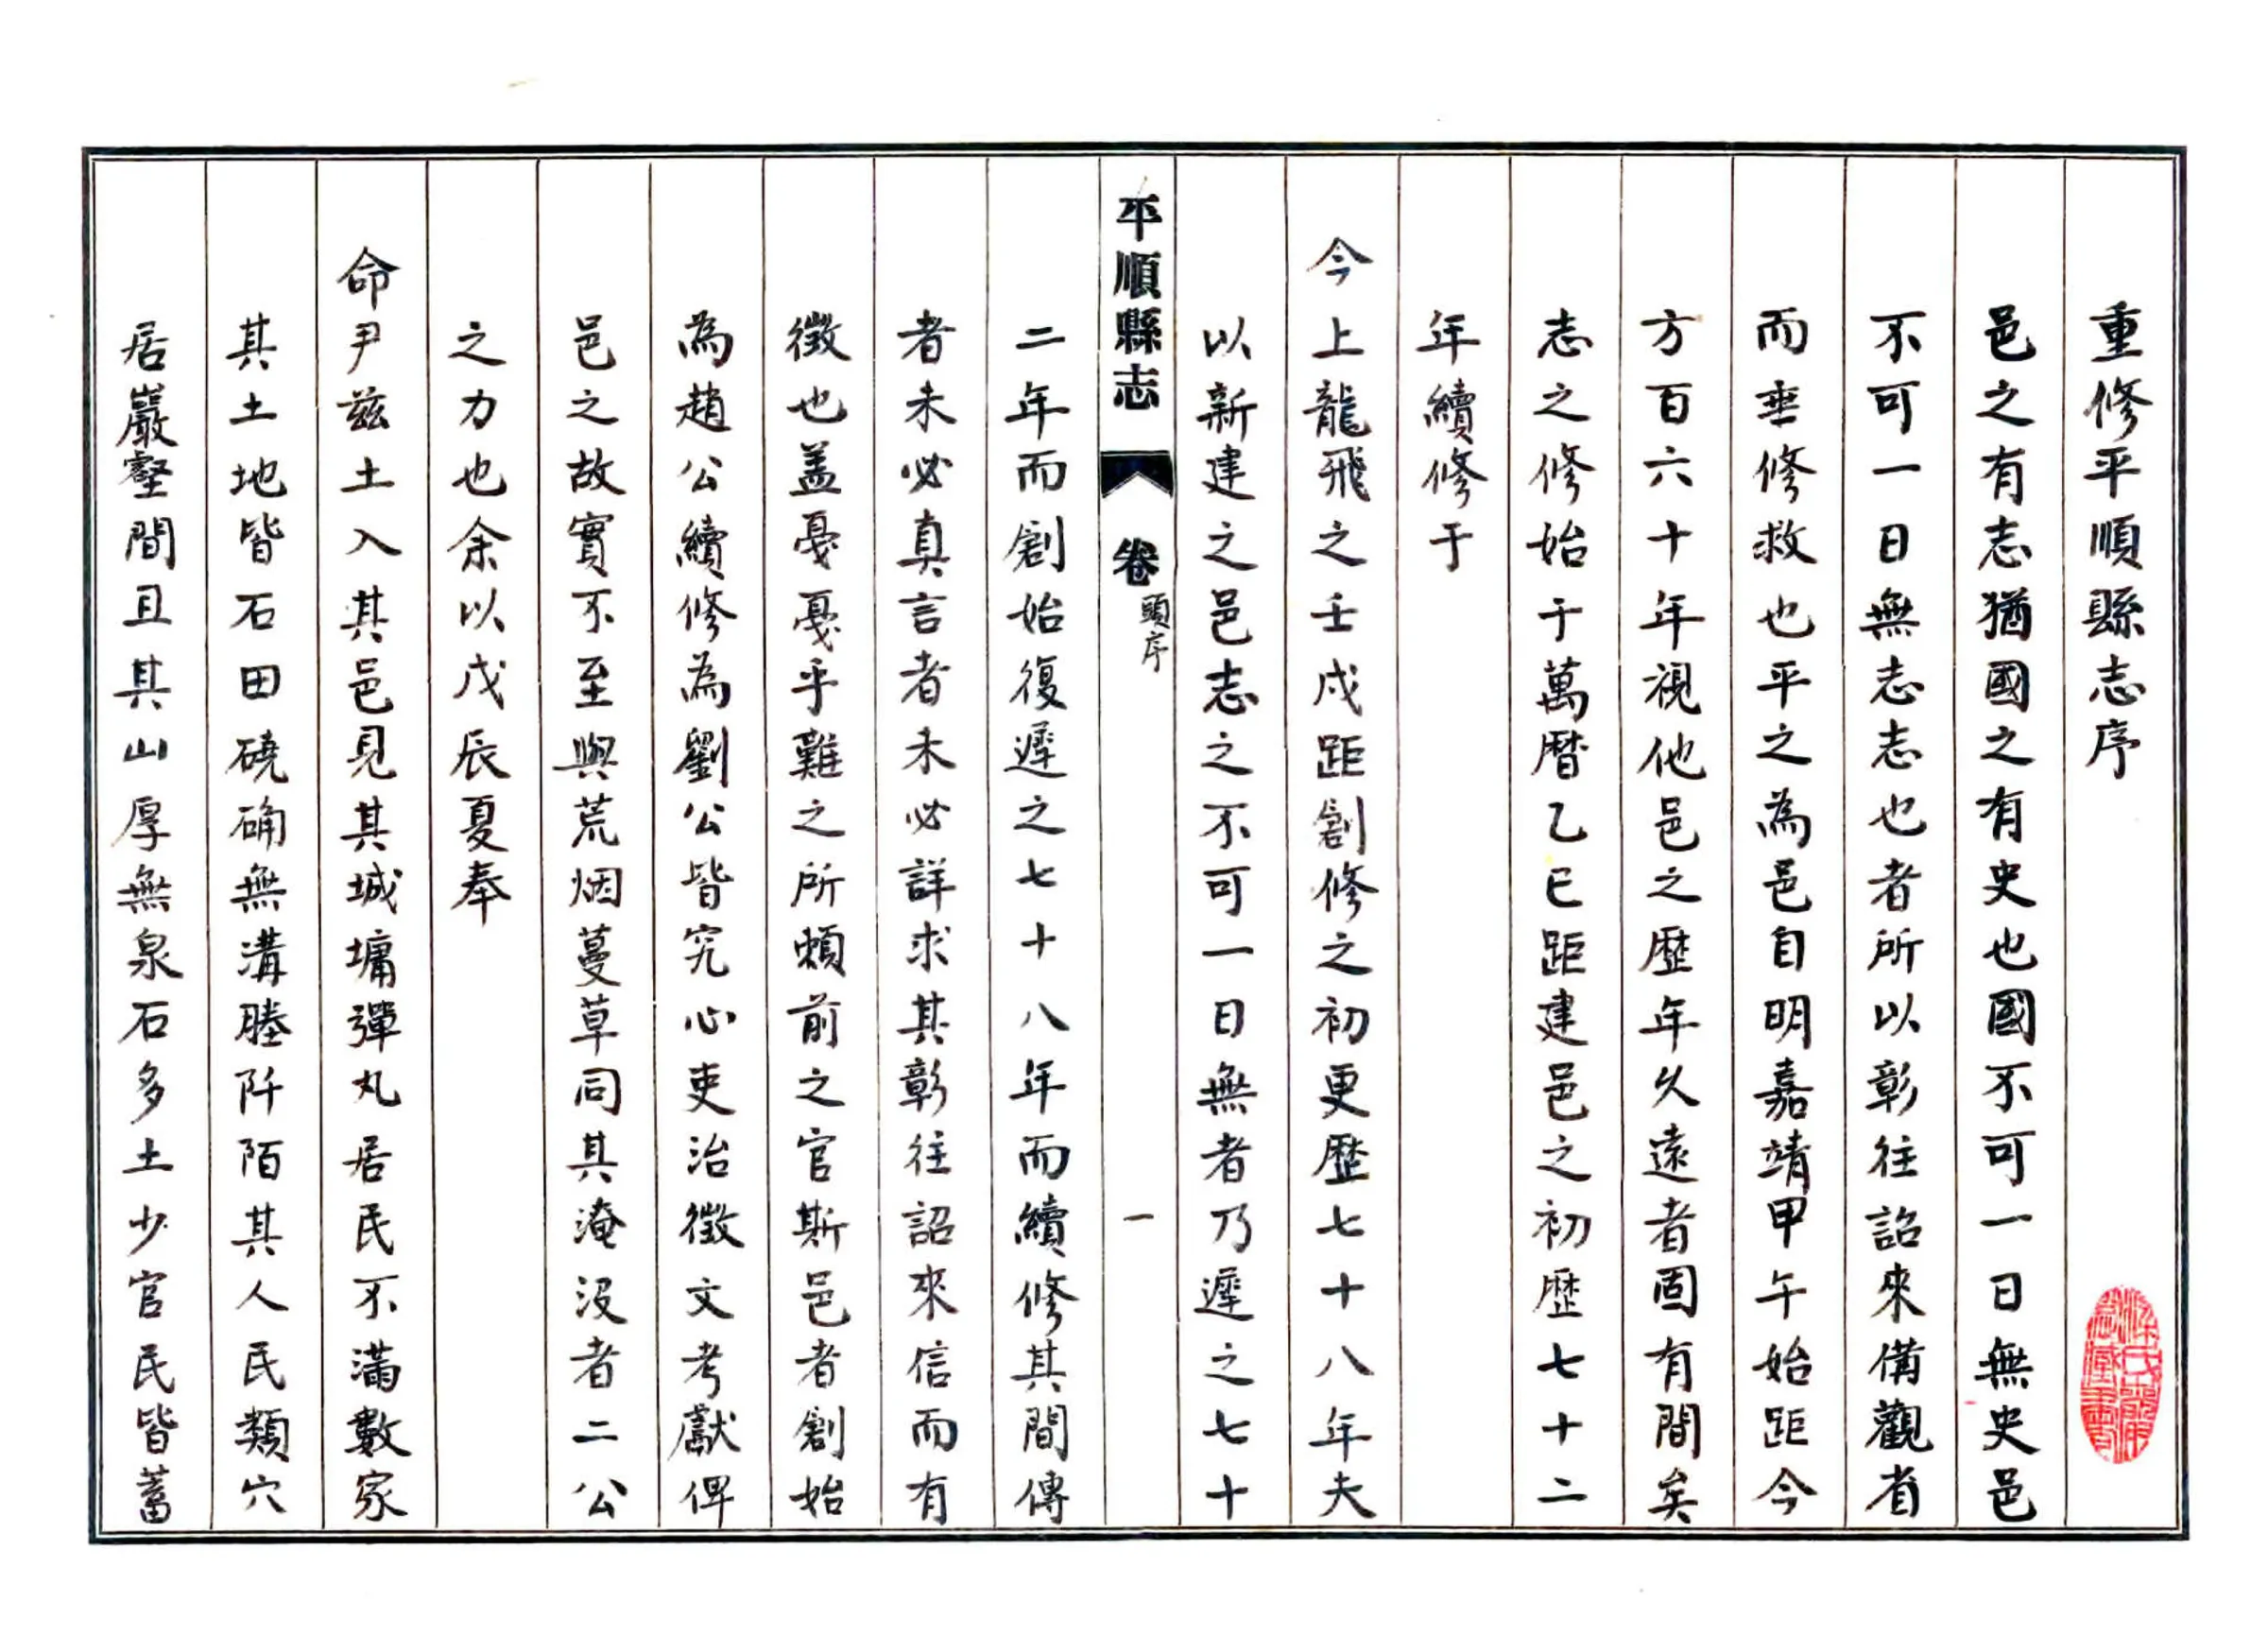 重修平順縣志序
邑之有志猶國之有史也國不可一日無史邑
不可一日無志志也者所以彰往詔來備觀省
而垂修救也平之為邑自明嘉靖甲午始距今
方百六十年視他邑之歷年久遠者固有間矣
志之修始于萬曆乙巳距建邑之初歷七十二
年續修于
今上龍飛之壬戌距創修之初更歷七十八年夫
以新建之邑志之不可一日無者乃遲之七十
平順縣志 卷頭序 一
二年而創始復遲之七十八年而續修其間傳
者未必真言者未必詳求其彰往詔來信而有
徵也盖戞戞乎難之所頼前之官斯邑者創始
為趙公續修為劉公皆究心吏治徵文考獻俾
邑之故實不至與荒烟蔓草同其淹沒者二公
之力也余以戊辰夏奉
命尹兹土入其邑見其城墉彈丸居民不滿數家
其土地皆石田磽确無溝塍阡陌其人民類穴
居巖壑間且其山厚無泉石多土少官民皆蓄